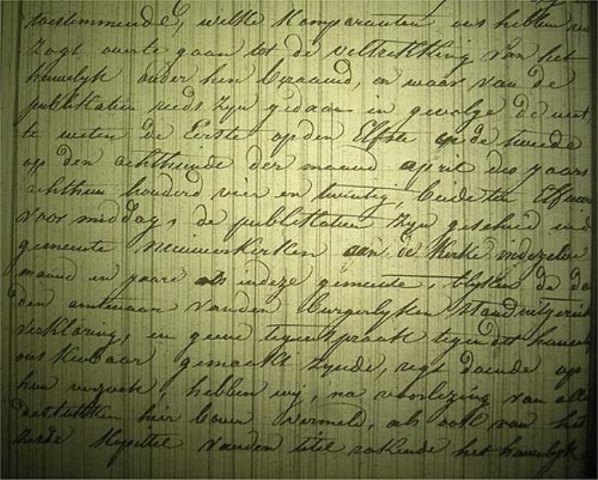 toestemmende, welke Komparanten ons hebben ver
zogt overte gaan tot de voltrekking van het
huwelyk onder hen beraamd, en waar van de
publikatien reeds zyn gedaan in gevolge de wet,
te weten de Eerste op den Elfste en de tweede
op den achttiende der maand april des jaars
achttien honderd vier en twintig, beide ten Elf uren
voormiddag, de publikatien zyn geschied in de
gemeente nieuwerkerken aan de Kerke indezelve
maand en jaare als indeze gemeente, blyken de da
den amtenaar vanden burgerlyken stand uitgericht
verklaring, en geene tegenspraak tegen dit huwel
ons kenbaar gemaakt zynde, regt doende op
hun verzoek, hebben wy, na voorlezing van alle
de stukken hier boven vermeld, als ook van het
zesde Kapittel vanden titel rakende het huwelyk